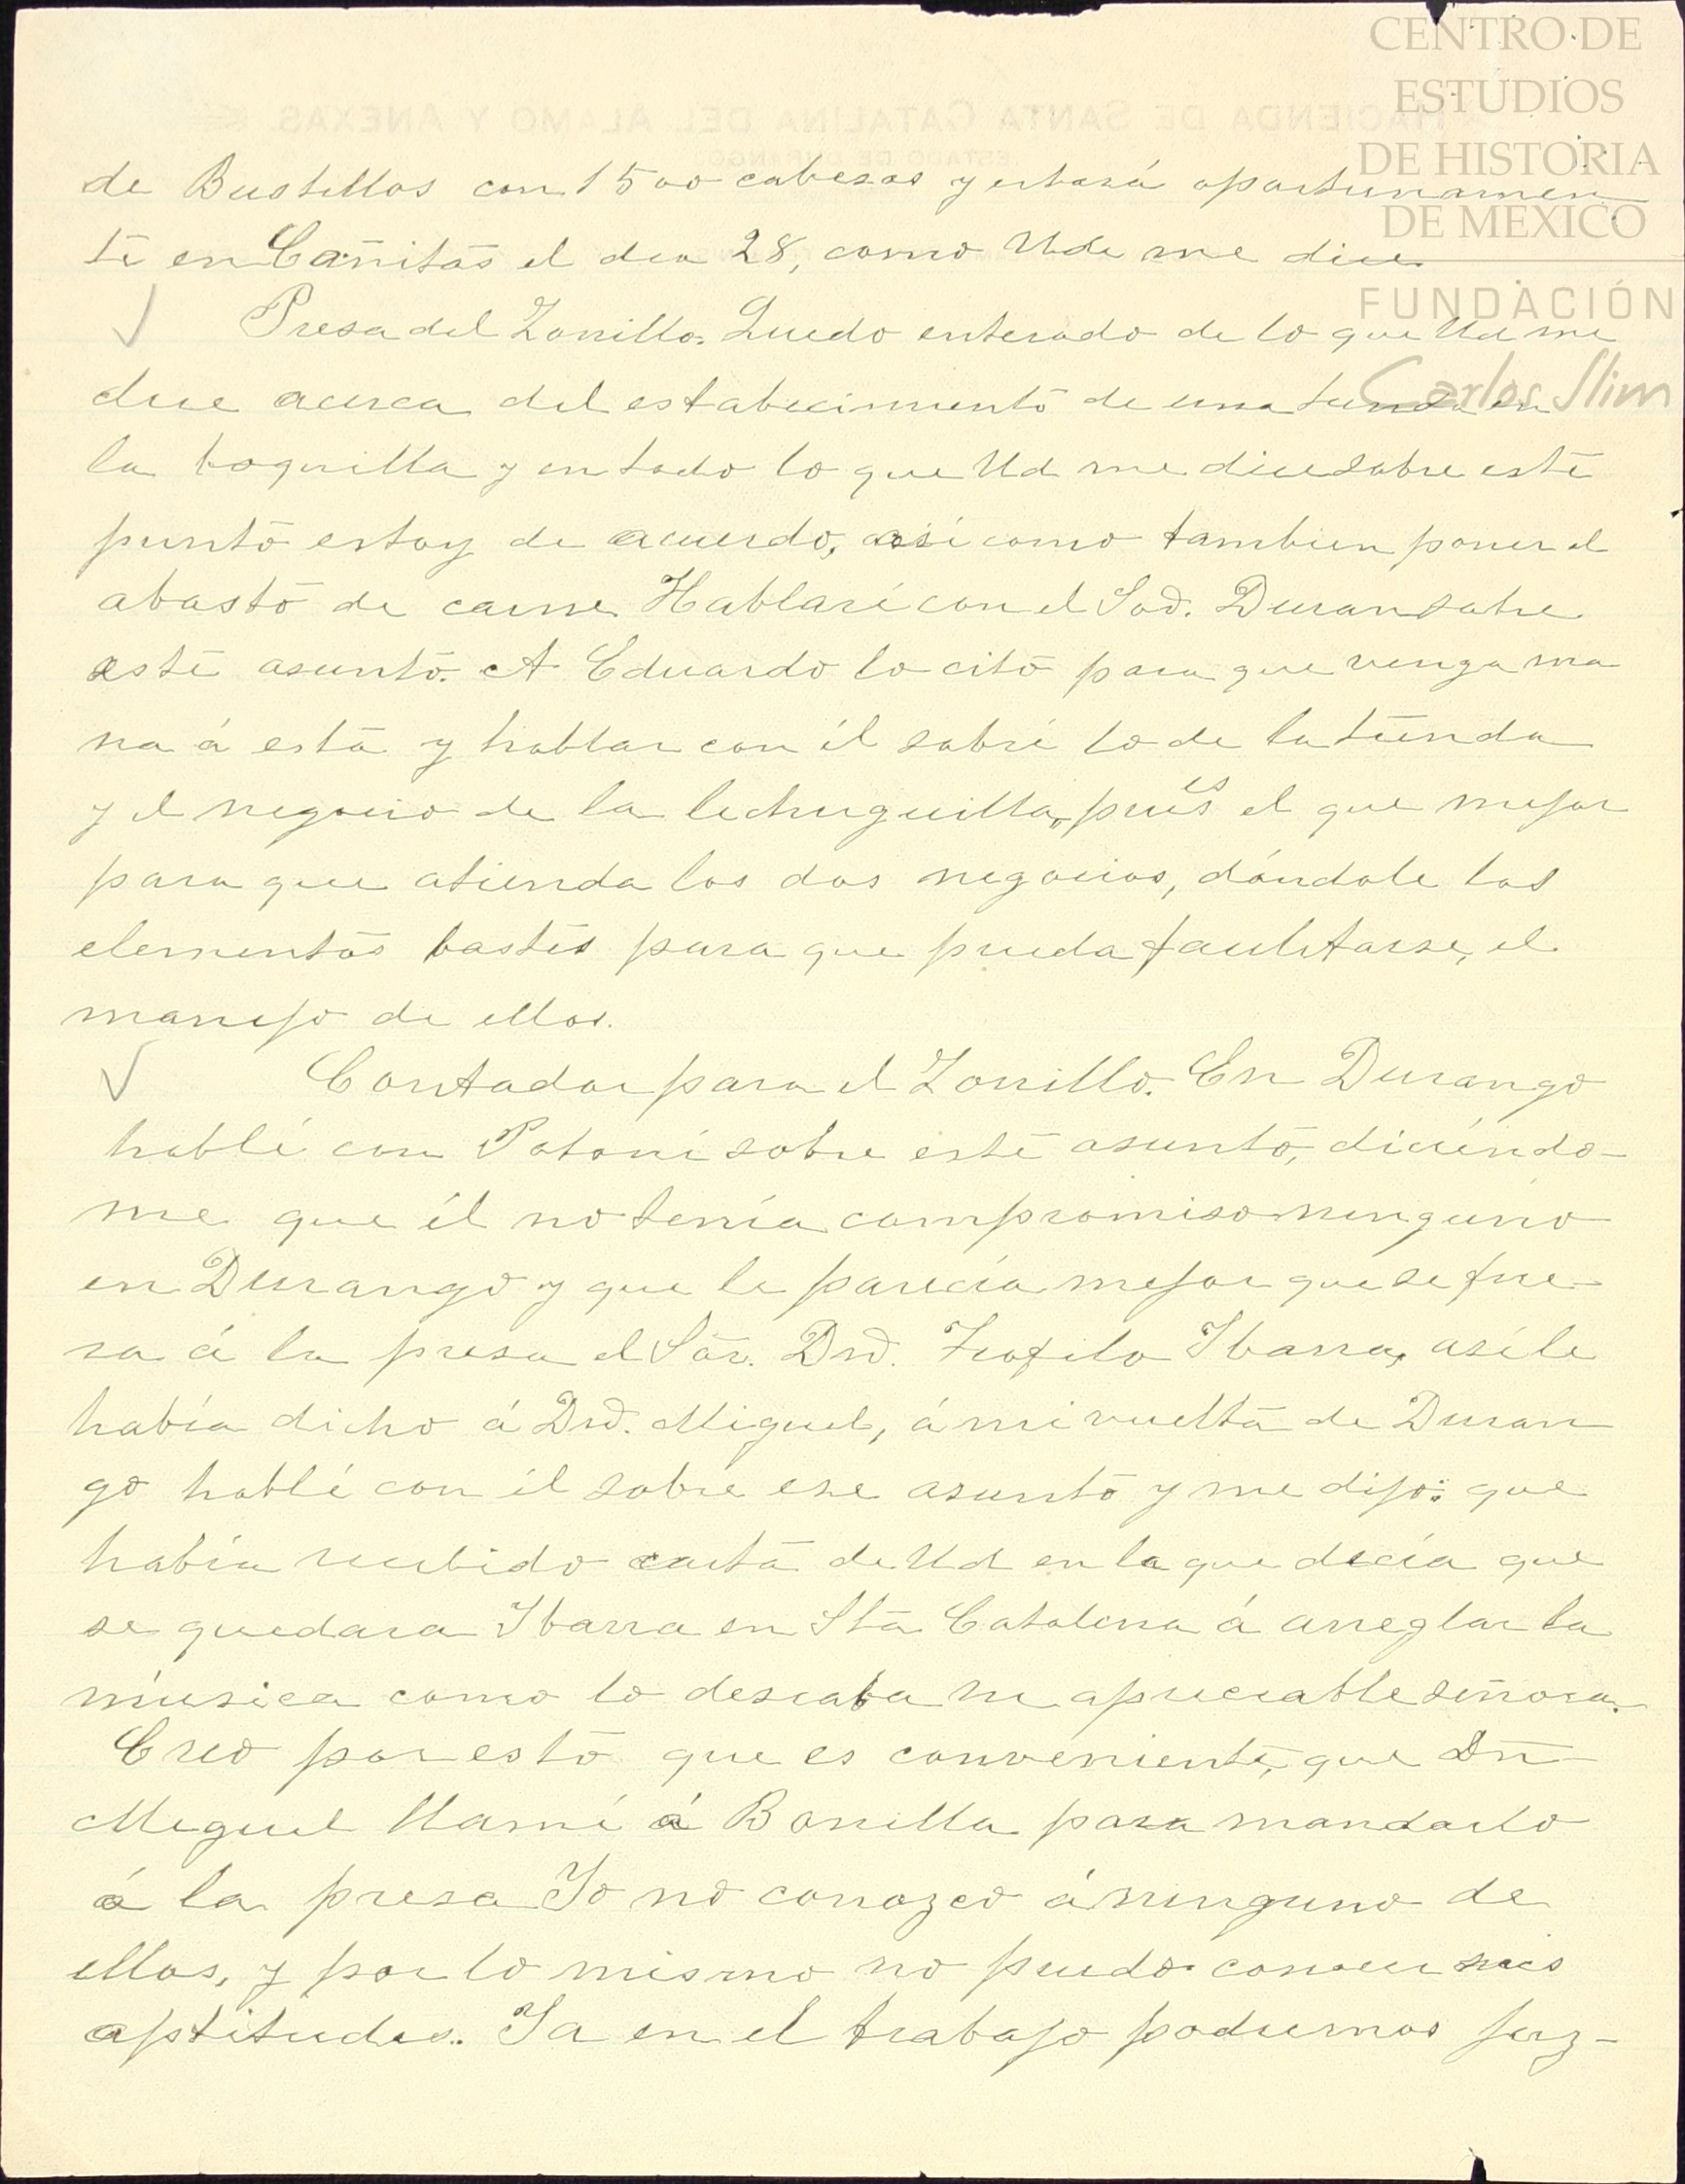 CENTRO DE
ESTUDIOS
DE HISTORIA
DE MEXICO
FUNDACIÓN
Carlos Slim
HACIENDA DE SANTA CATALINA DEL ALAMO Y ANEXAS.
ESTADO DE DURANGO
de Bustillos con 1500 cabezas y estará oportunamen
te en Cañitas el dia 28, como Ud. me dice.
Presa del Zorrillo. Quedo enterado de lo que Ud me
dice acerca del establecimiento de una tienda en
la boquilla y en todo lo que Ud me dice sobre este
punto estoy de acuerdo, así como tambien poner el
abasto de carne. Hablaré con el Sod. Duran sobre
este asunto. A Eduardo lo cito para que venga ma
na á esta y hablar con él sobre lo de la tienda
y el negocio de la lechuguilla, pues es el que mejor
para que atienda los dos negocios, dándole los
elementos bastes para que pueda facilitarse, el
manejo de ellos.
Contador para el Zorrillo. En Durango
hablé con Patoni sobre este asunto, diciéndo-
me que él no tenía compromiso ninguno
en Durango y que le parecía mejor que se fue-
ra á la presa el Sor. Dn. Teofilo Ibarra, así le
había dicho á Dn. Miguel, á mi vuelta de Duran
go hablé con él sobre ese asunto y me dijo: que
había recibido carta de Ud en la que decía que
se quedara Ibarra en Sta Catalina á arreglar la
música como lo deseaba su apreciable señora.
Creo por esto que es conveniente, que Dn
Miguel llame á Bonilla para mandarlo
á la presa Yo no conozco á ninguno de
ellos, y por lo mismo no puedo conocer sus
aptitudes. Ya en el trabajo podremos juz-